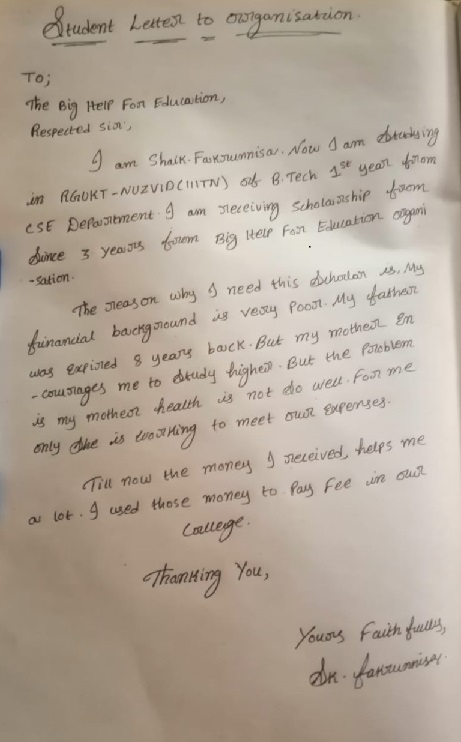 Student Letter to organisation.
To;
The Big Help For Education,
Respected Sir,
I am Shaik. Fakrunnisa. Now I am studying
in RGUKT-NUZVID(IIITN) of B.Tech 1st year from
CSE Department. I am receiving scholarship from
since 3 years from Big Help For Education organi
-sation.
The reason why I need this scholar is. My
financial background is very poor. My father
was expired 8 years back. But my mother en
-courages me to study higher. But the problem
is my mother health is not do well. For me
only she is working to meet our expenses.
Till now the money I received, helps me
a lot. I used those money to pay fee in our
College.
Thanking You,
Yours Faithfully,
Sk. Fakrunnisa.